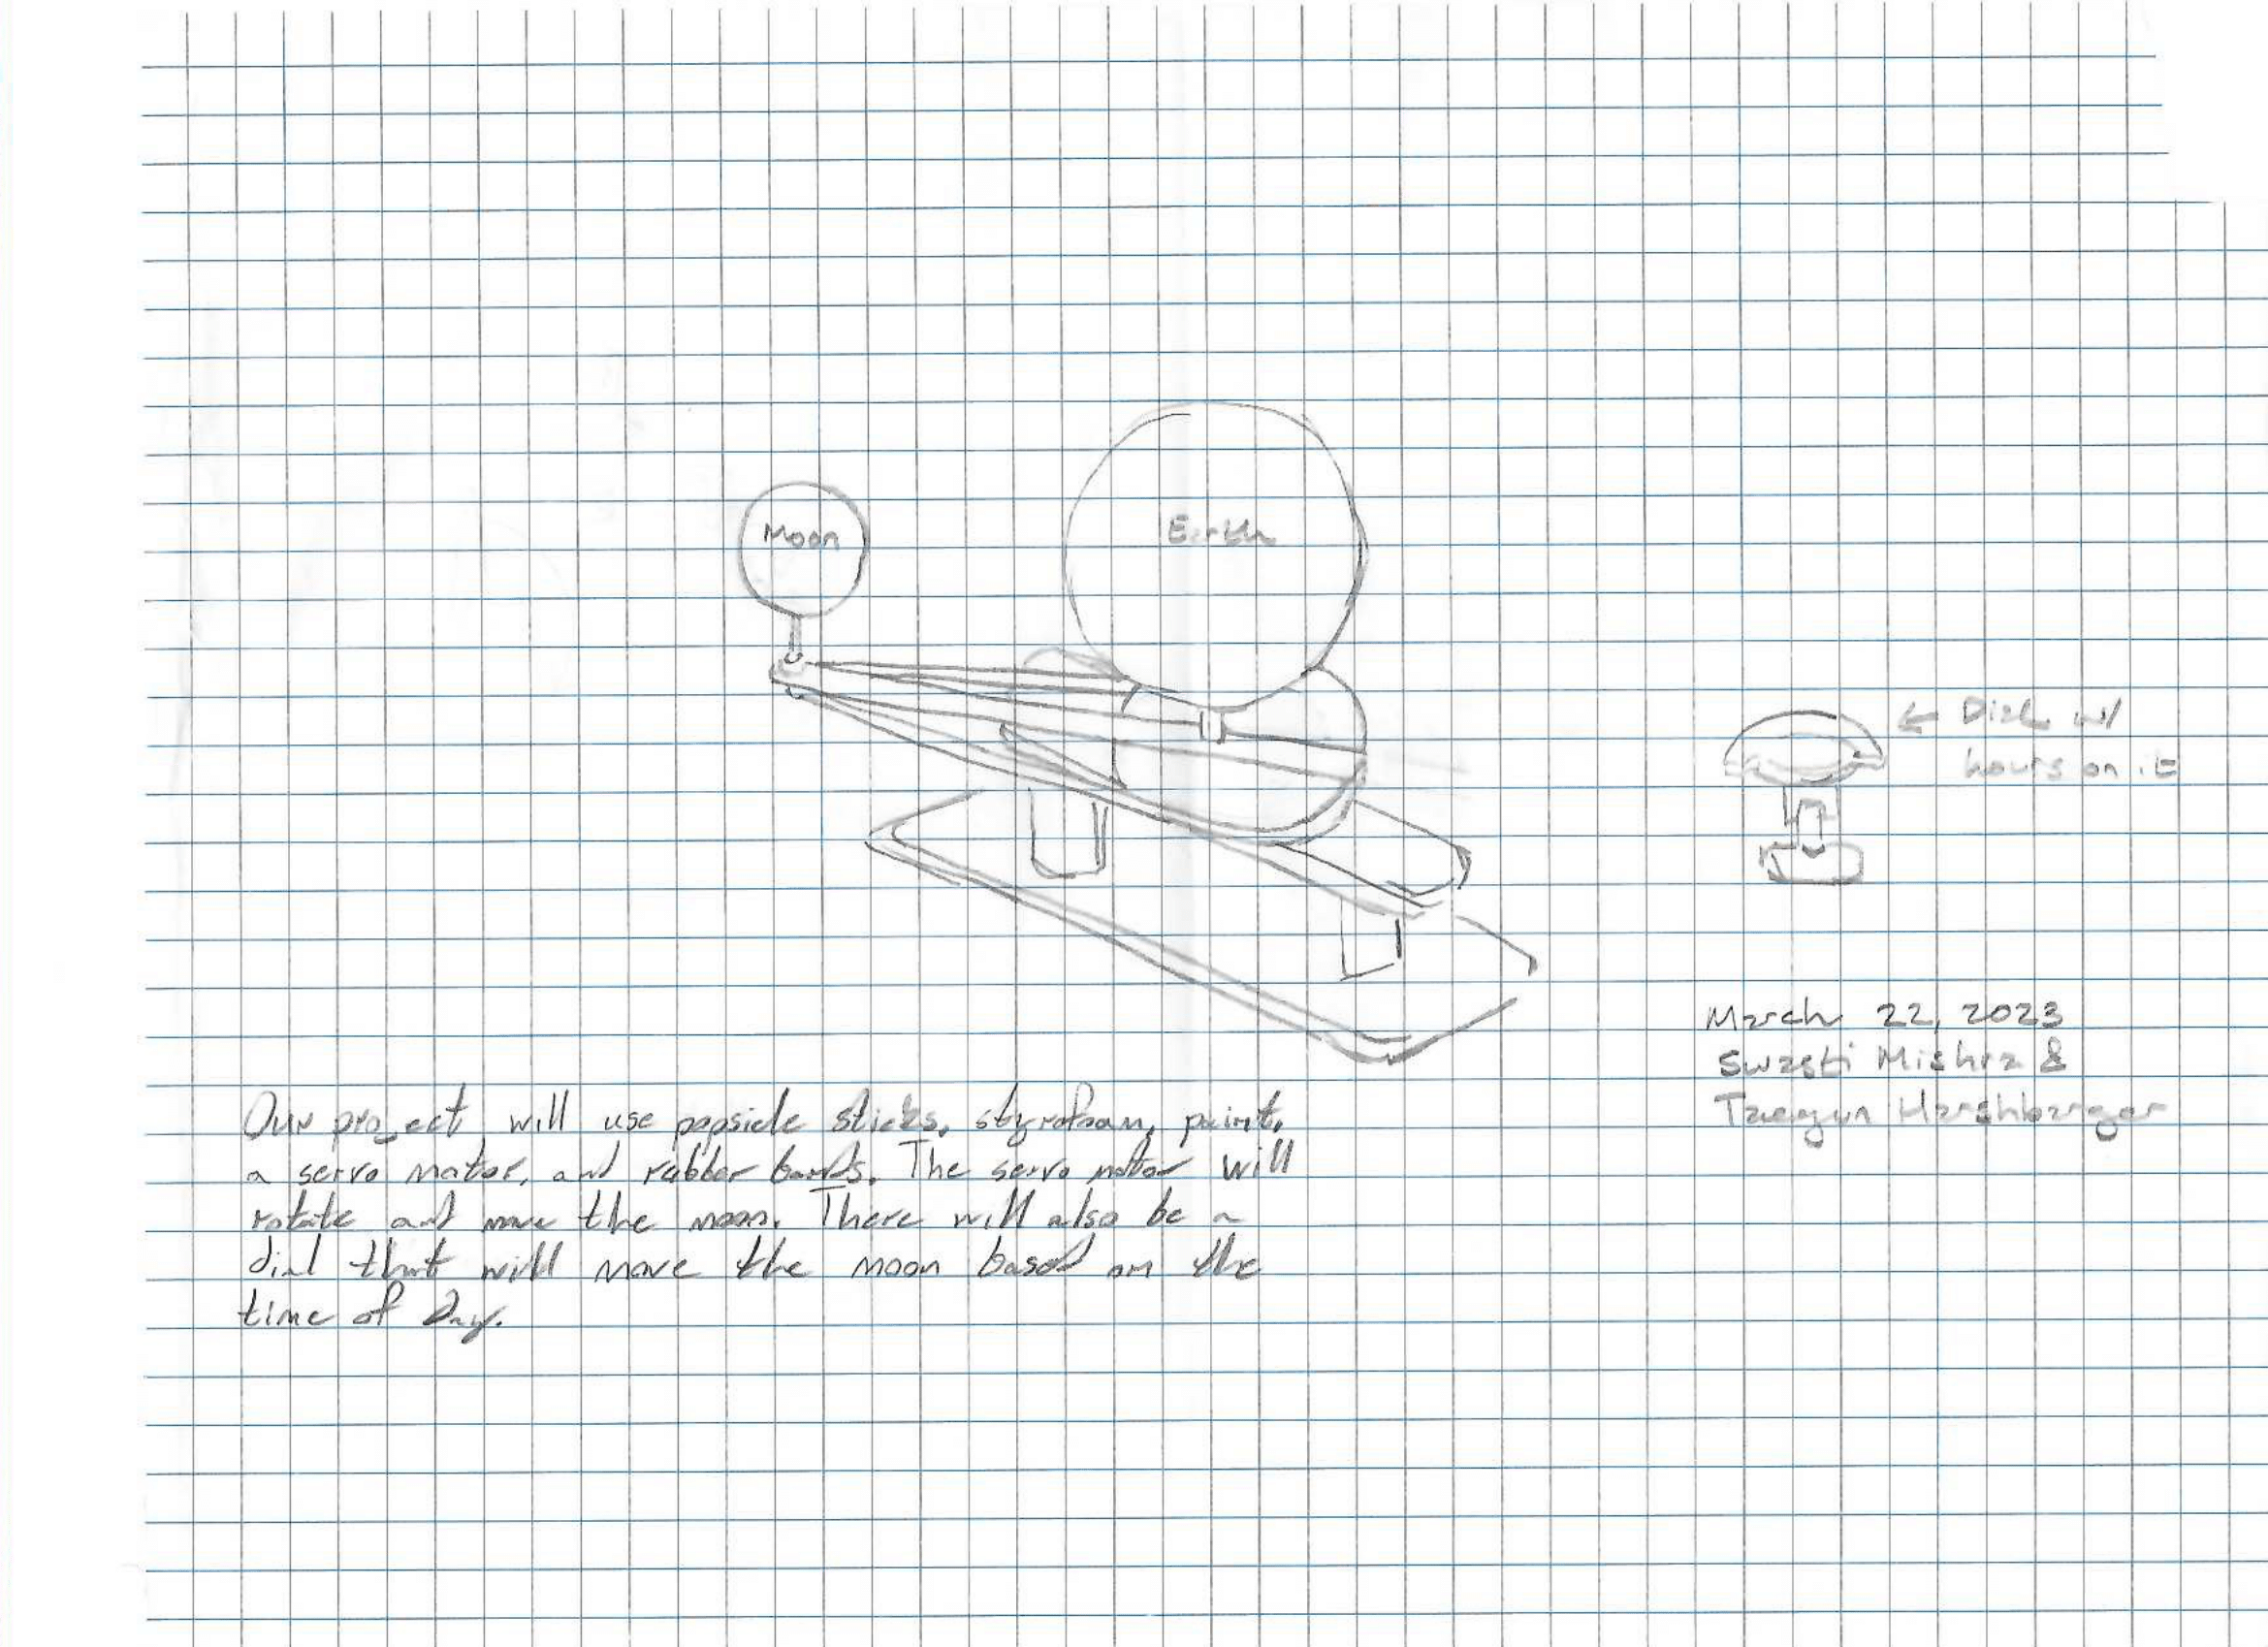 Moon
Earth
← Dial w/
hours on it
March 22, 2023
Swasti Mishra &
Taegun Harshbarger
Our project will use popsicle sticks, styrofoam, paint,
a servo motor, and rubber bands. The servo motor will
rotate and move the moon. There will also be a
dial that will move the moon based on the
time of day.